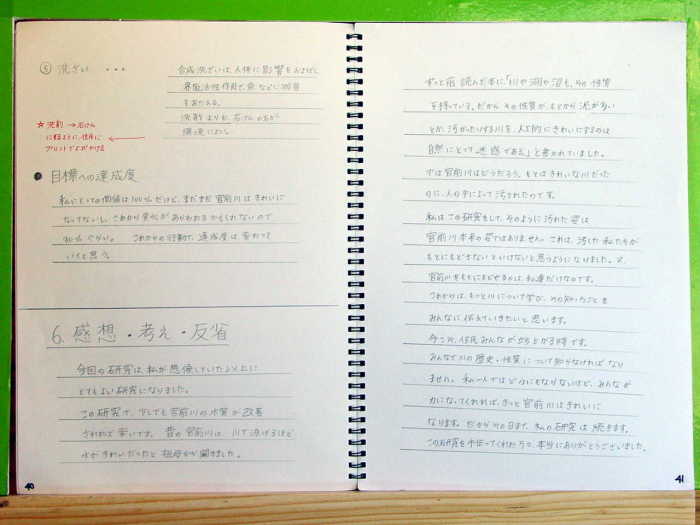 ⑤ 洗ざい ・・・
合成洗ざいは、人体に影響をおよぼし
界面活性作用で、魚などに被害
をあたえる。
洗剤よりも、石けんの方が
環境によい。
★洗剤→石けん
に換えるように、住民に
プリントでよびかける
● 目標への達成度
私にとっての価値は100%だけど、まだまだ官前川はきれいに
なってないし、これから変化があらわれるかもしれないので
70%ぐらい。 これからの行動で、達成度は変わって
いくと思う。
6. 感想・考え・反省
今回の研究は、私が想像していた以上に
とてもよい研究になりました。
この研究で、少しでも官前川の水質が改善
されれば幸いです。昔の官前川は、川で泳げるほど
水がきれいだったと祖母から聞きました。
40
ずっと前読んだ本に、「川や湖や沼も、その性質
を持っている。だから、その性質が、もとから泥が多い
とか、汚かったりする川を、人工的にきれいにするのは
自然にとって迷惑である」と書かれていました。
では官前川はどうだろう。もとはきれいな川だった
のに、人の手によって汚されたのです。
私はこの研究をして、そのように汚れた姿は
官前川本来の姿ではありません。これは、汚した私たちが
もとにもどさないといけないと思うようになりました。
官前川をもとにもどせるのは、私達だけなのです。
これからは、もっと川について学び、その知ったことを
みんなに伝えていきたいと思います。
今こそ、住民みんなが立ち上がる時です。
みんなで川の歴史・性質について知らなければなり
ません。私一人ではどうにもならないけど、みんなが
力になってくれれば、きっと官前川はきれいに
なります。だからその日まで、私の研究は続きます。
この研究を手伝ってくれた方々、本当にありがとうございました。
41